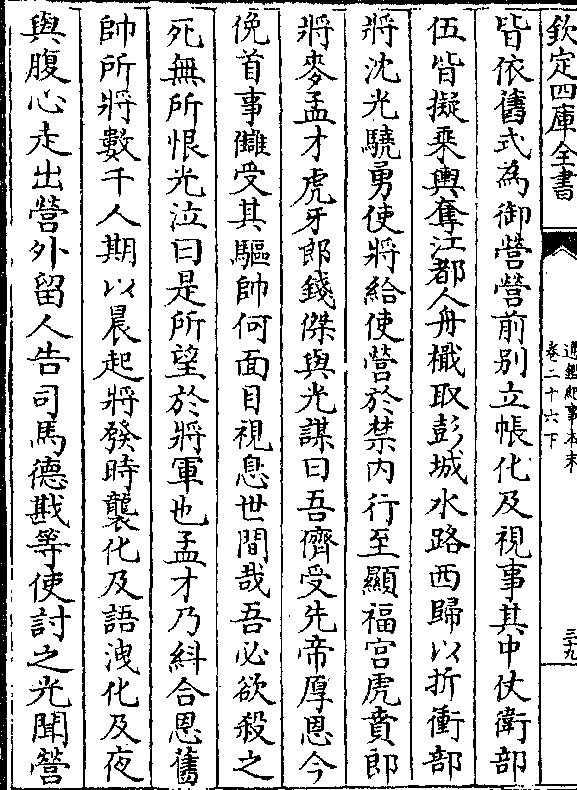 欽定四庫全書
通鑑紀事本末
卷二十六下
三九
皆依舊式為御營營前别立帳化及視事其中仗衛部
伍皆擬乗輿奪江都人舟檝取彭城水路西歸以折衝部
將沈光驍勇使將給使營於禁内行至顯福宫虎賁郎
將麥孟才虎牙郎錢傑與光謀曰吾儕受先帝厚恩今
俛首事讎受其驅帥何面目視息世間哉吾必欲殺之
死無所恨光泣曰是所望於將軍也孟才乃糾合恩舊
帥所將數千人期以晨起將發時襲化及語洩化及夜
與腹心走出營外留人告司馬德戡等使討之光聞營